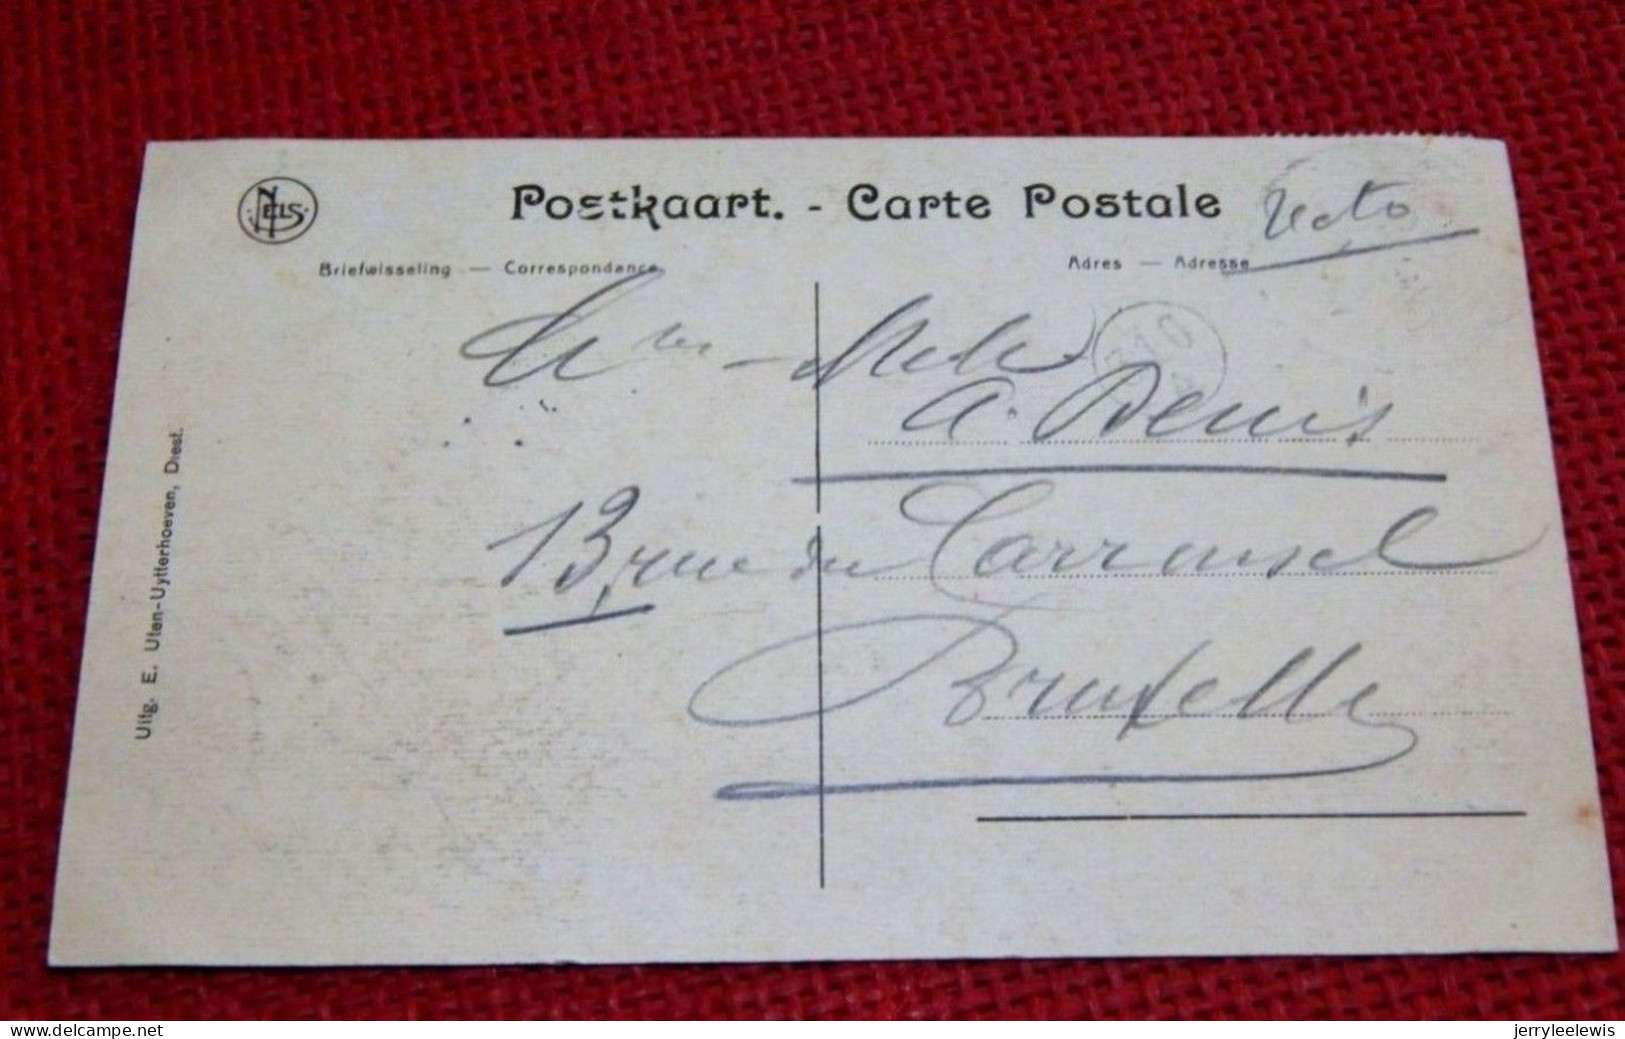 NELS
Postkaart. - Carte Postale
Recto
Briefwisseling — Correspondance
Adres — Adresse
A. Denis
13, rue du Carrousel
Bruxelles
Uitg. E. Uten-Uytterhoeven, Diest.
www.delcampe.net
jerryleelewis